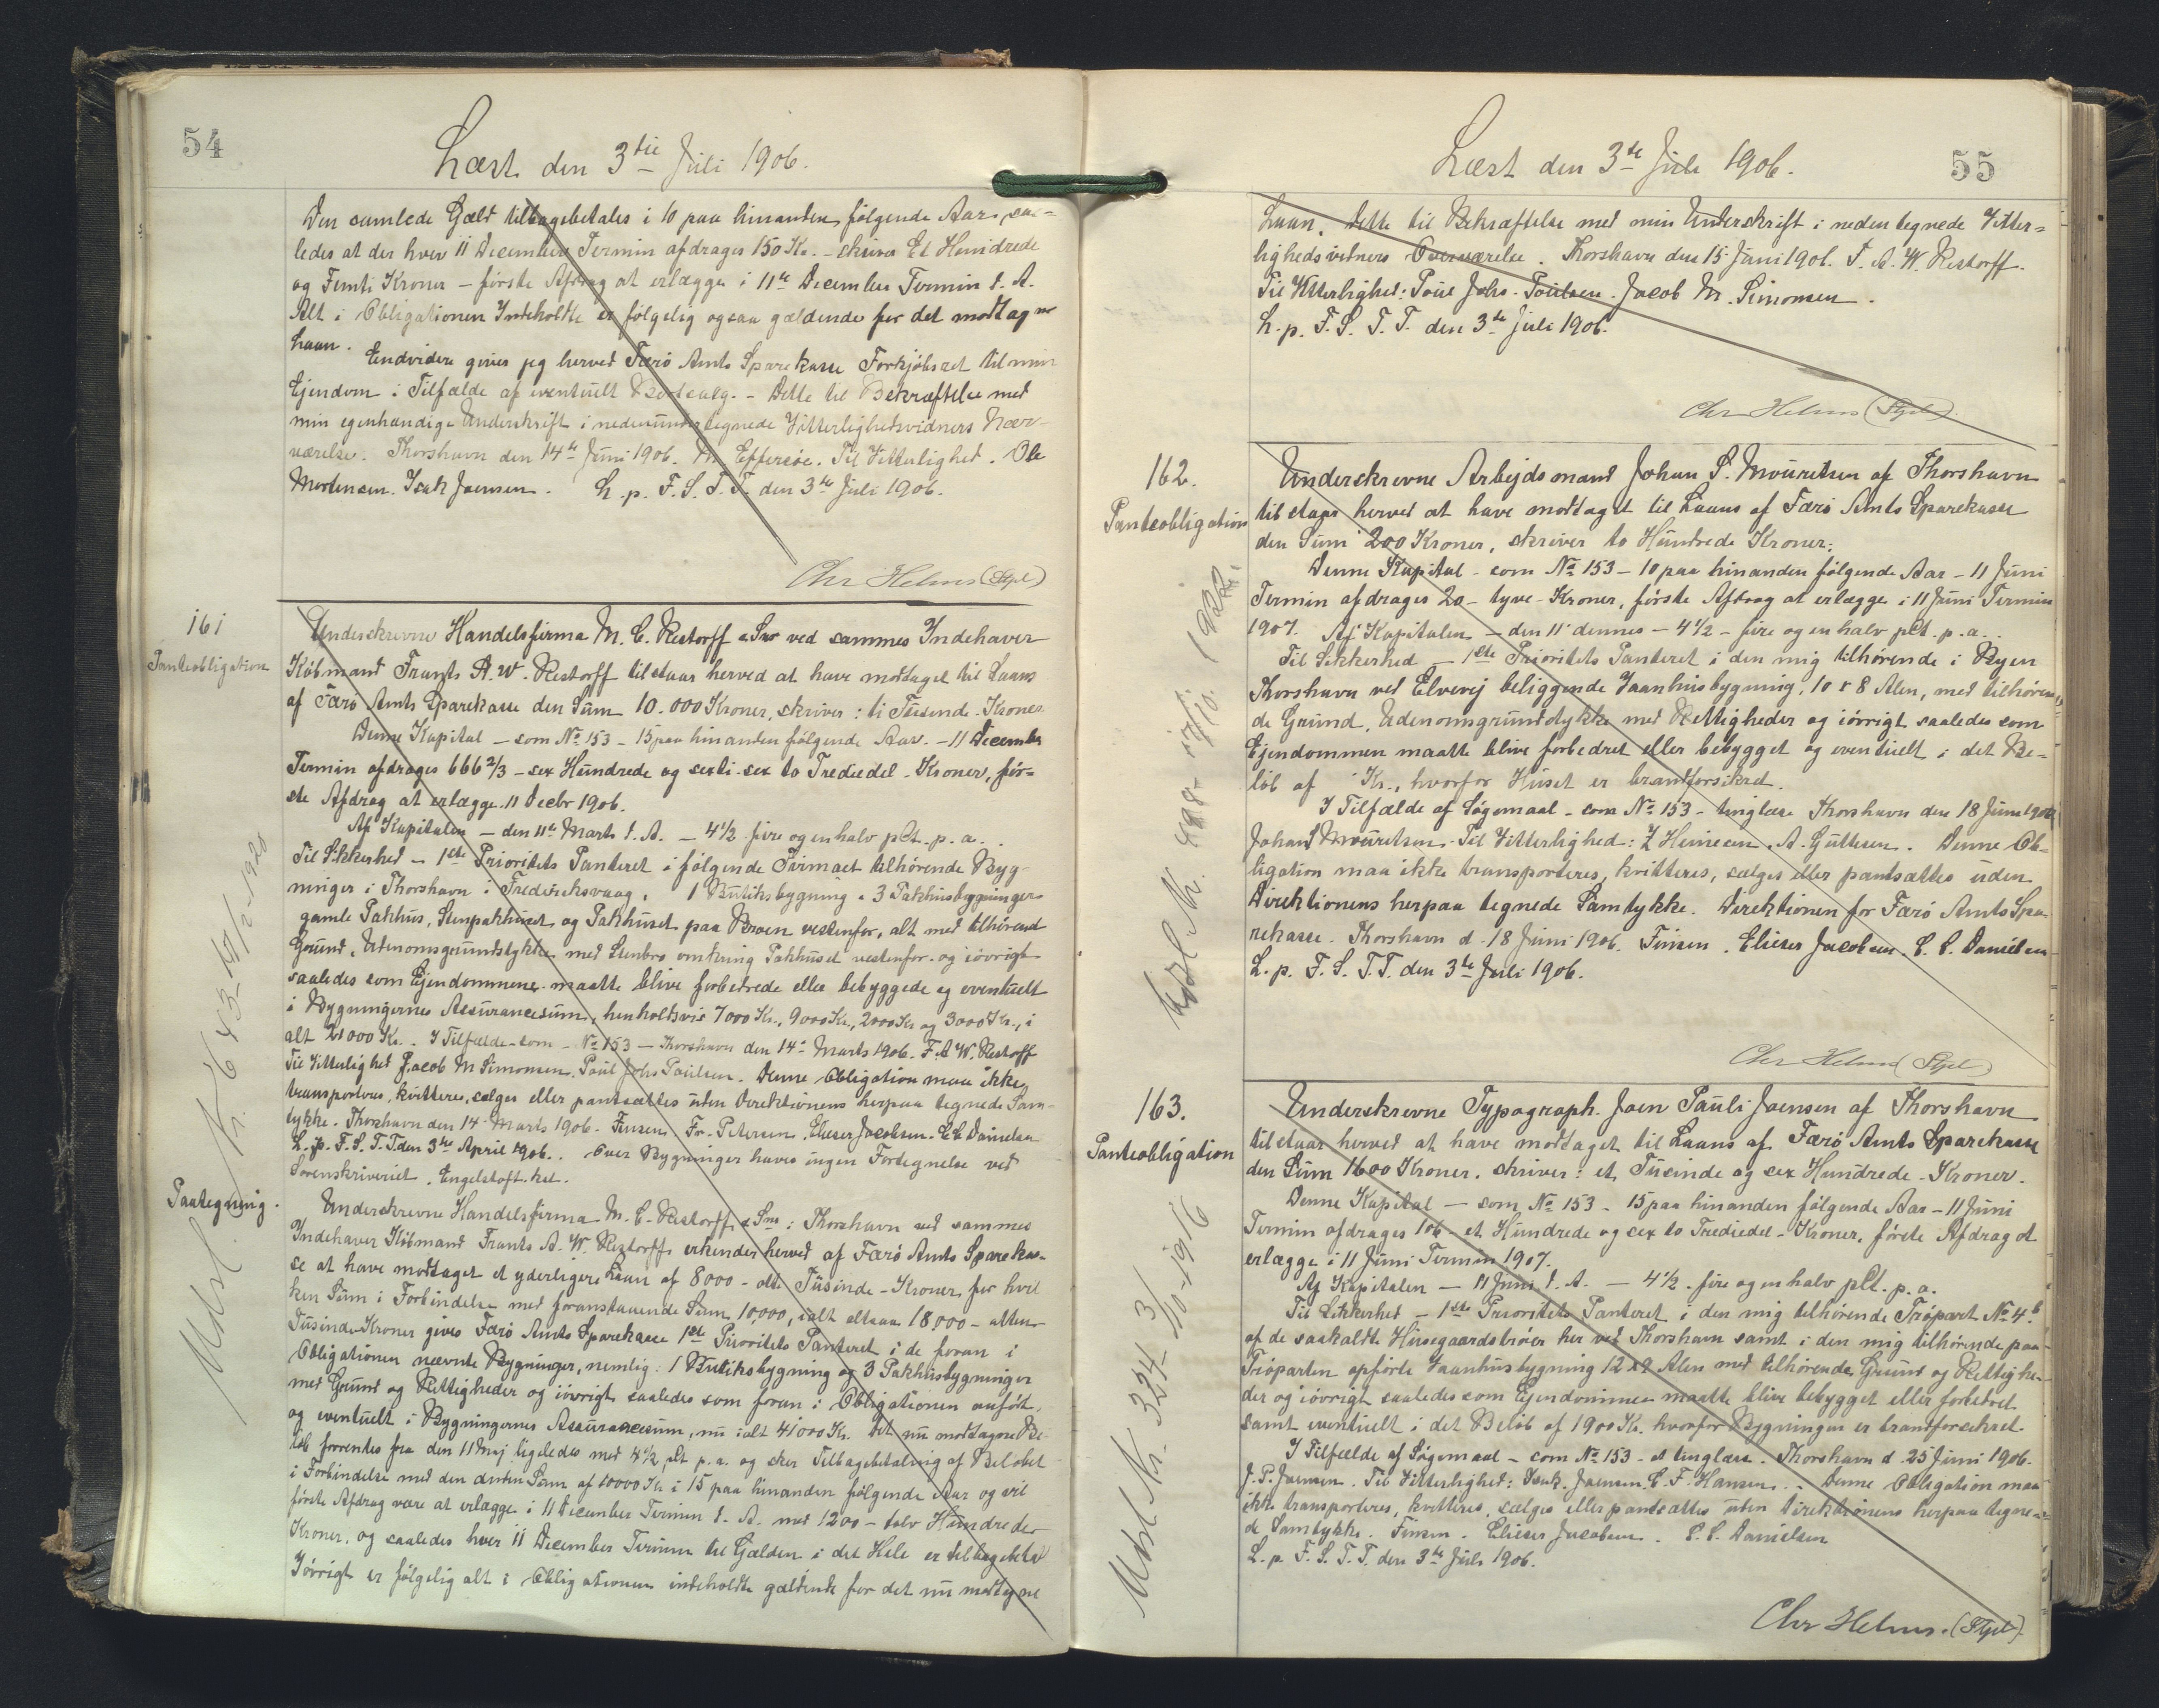 54
Læst den 3die Juli 1906.
Den samlede Gæld tilbagebetales i 10 paa hinanden følgende Aar, saa=
ledes at der hver 11 December Termin afdrages 150 Kr. - skriver Et Hundrede
og Femti Kroner - første Afdrag at erlægge i 11te December Termin d. A.
Alt i Obligationen Indeholdte er følgelig ogsaa gældende for det modtagne
Laan.
Endvidere giver jeg herved Færø Amts Sparekasse Forkjøbsret til min
Ejendom i Tilfælde af eventuelt Bortsalg. - Dette til Bekræftelse med
min egenhændige Underskrift i nedenundertegnede Vitterlighedsvidners Nær-
værelse. Thorshavn den 14de Juni 1906. M. Effersøe. Til Vitterlighed. Ole
Mortensen. Isak Joensen. L. p. F. S. T. T. den 3de Juli 1906.
Chr Helms (Stpl)
161
Panteobligation
Underskrevne Handelsfirma M. C. Restorff & Søn ved sammes Indehaver
Købmand Frants A. W. Restorff tilstaar herved at have modtaget til Laans
af Færø Amts Sparekasse den Sum 10.000 Kroner, skriver: ti Tusinde Kroner
Denne Kapital - som No 153 - 15 paa hinanden følgende Aar. - 11 December
Termin afdrages 666 2/3 - sex Hundrede og sexti-sex to Trediedel - Kroner, før=
ste Afdrag at erlægge 11 Decbr 1906.
Af Kapitalen - den 11te Marts d. A. - 4 1/2 fire og en halv pCt. p. a..
Til Sikkerhed - 1ste Prioritets Panteret i følgende Firmaet tilhørende Byg-
ninger i Thorshavn i Frederiksvaag. 1 Butiksbygning & 3 Pakhusbygninger
gamle Pakhus, Stenpakhuset og Pakhuset paa Broen vestenfor, alt med tilhørend
Grund, Udenomsgrundstykke med Stenbro omkring Pakhuset vestenfor og iøvrigt
saaledes som Ejendommene maatte blive forbedrede eller bebyggede og eventuelt
i Bygningernes Assurancesum, henholdsvis 7000 Kr., 9000 Kr., 2000 Kr og 3000 Kr., i
alt 21000 Kr.. I Tilfælde - som - No 153 - Thorshavn den 14de Marts 1906. F. A. W. Restorff
Til Vitterlighed Jacob M Simonsen. Poul Johs Poulsen. Denne Obligation maa ikke
transporteres, kvitteres, sælges eller pantsættes uden Direktionens herpaa tegnede Sam-
tykke. Thorshavn den 14 Marts 1906. Finsen Fr. Petersen. Elieser Jacobsen. C. C. Danielsen
L. p. F. S. T. T. den 3de April 1906.. Over Bygninger haves ingen Fortegnelse ved
Sorenskriveriet. Engelstoft. kst.
Udsl. Nr. 643 - 10/2 - 1920
Paategning.
Underskrevne Handelsfirma M. C. Restorff & Søn i Thorshavn ved sammes
Indehaver Købmand Frants A. W. Restorff, erkender herved af Færø Amts Spareka-
se at have modtaget et yderligere Laan af 8000 - otte Tusinde - Kroner, for hvil
ken Sum i Forbindelse med foranstaaende Sum 10,000, ialt altsaa 18,000 - atten
Tusinde Kroner gives Færø Amts Sparekasse 1ste Prioritets Panteret i de foran i
Obligationen nævnte Bygninger, nemlig: 1 Butiksbygning og 3 Pakhusbygninger
med Grund og Rettigheder og iøvrigt saaledes som foran i Obligationen anført,
og eventuelt i Bygningernes Assurancesum, nu ialt 41000 Kr. Det nu modtagne Be-
løb forrentes fra den 11 Maj ligeledes med 4 1/2 pCt p. a. og sker Tilbagebetaling af Beløbet
i Forbindelse med den anden Sum af 10000 Kr i 15 paa hinanden følgende Aar og vil
første Afdrag være at erlægge i 11 December Termin d. A. med 1200 - tolv Hundrede
Kroner, og saaledes hver 11 December Termin til Gælden i det Hele er tilbagebetalt
Iøvrigt er følgelig alt i Obligationen indeholdte gældende for det nu modtagne
55
Læst den 3de Juli 1906.
Laan. Dette til Bekræftelse med min Underskrift i nedentegnede Vitter=
lighedsvidners Overværelse. Thorshavn den 15 Juni 1906. F. A. W. Restorff.
Til Vitterlighed: Poul Johs. Poulsen. Jacob M. Simonsen.
L. p. F. S. T. T. den 3de Juli 1906.
Chr Helms (Stpl).
162.
Panteobligation
Underskrevne Arbejdsmand Johan P. Mouritsen af Thorshavn
tilstaar herved at have modtaget til Laans af Færø Amts Sparekasse
den Sum 200 Kroner, skriver to Hundrede Kroner.
Denne Kapital - som No 153 - 10 paa hinanden følgende Aar - 11 Juni
Termin afdrages 20 - tyve - Kroner, første Afdrag at erlægge i 11 Juni Termin
1907. Af Kapitalen - den 11 dennes - 4 1/2 - fire og en halv pCt. p. a..
Til Sikkerhed - 1ste Prioritets Panteret i den mig tilhørende i Byen
Thorshavn ved Elvevej beliggende Vaanhusbygning, 10 x 8 Alen, med tilhøren=
de Grund, Udenomsgrundstykke med Rettigheder og iøvrigt saaledes som
Ejendommen maatte blive forbedret eller bebygget og eventuelt i det Be=
løb af Kr., hvorfor Huset er brandforsikret.
I Tilfælde af Søgsmaal - som No 153 - tinglæse Thorshavn den 18 Juni 1906
Johan P Mouritsen. Til Vitterlighed: Z Heinesen. A. Guttesen. Denne Ob=
ligation maa ikke transporteres, kvitteres, sælges eller pantsættes uden
Direktionens herpaa tegnede Samtykke. Direktionen for Færø Amts Spa-
rekasse. Thorshavn d. 18 Juni 1906. Finsen. Elieser Jacobsen. C. C. Danielsen
L. p. F. S. T. T. den 3de Juli 1906.
Chr Helms (Stpl)
1922.
163.
Panteobligation
Underskrevne Typograph. Joen Pauli Joensen af Thorshavn
tilstaar herved at have modtaget til Laans af Færø Amts Sparekasse
den Sum 1600 Kroner. skriver: et Tusinde og sex Hundrede - Kroner.
Denne Kapital - som No 153 - 15 paa hinanden følgende Aar - 11 Juni
Termin afdrages 106 - et Hundrede og sex to Trediedel - Kroner, første Afdrag at
erlægge i 11 Juni Termin 1907.
Af Kapitalen - 11 Juni d. A. - 4 1/2 - fire og en halv pCt. p. a.
Til Sikkerhed - 1ste Prioritets Panteret i den mig tilhørende Trøpart No 4b
af de saakaldte Husegaardstrøer her ved Thorshavn samt i den mig tilhørende paa
Trøparten opførte Vaanhusbygning 12 x 9 Alen med tilhørende Grund og Rettighe-
der og iøvrigt saaledes som Ejendommen maatte blive bebygget eller forbedret
samt eventuelt i det Beløb af 1900 Kr. hvorfor Bygningen er brandforsikret.
I Tilfælde af Søgsmaal - som No 153 - at tinglæse. Thorshavn d. 25 Juni 1906.
J. P. Joensen. Til Vitterlighed: Isak. Joensen. C. F. Hansen.. Denne Obligation maa
ikke transporteres, kvitteres, sælges eller pantsættes uden Direktionens herpaa tegne=
de Samtykke. Finsen. Elieser Jacobsen. C. C. Danielsen
L. p. F. S. T. T. den 3de Juli 1906.
Udsl Nr. 324 - 3/10 - 1916
Chr Helms. (Stpl).